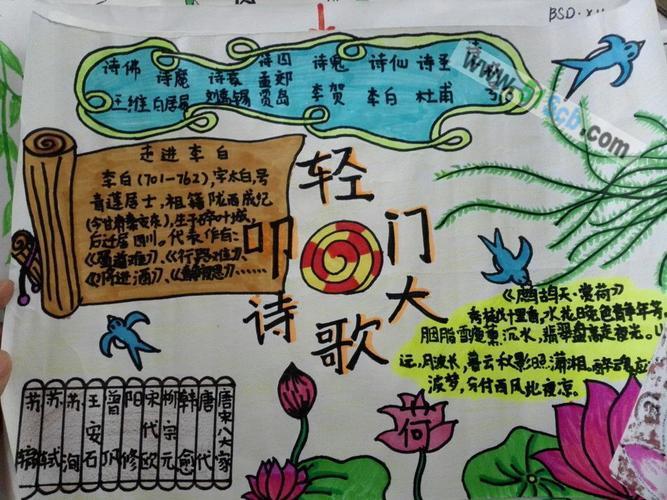 BSD
诗佛 诗魔 诗豪 诗囚 诗鬼 诗仙 诗圣
王维 白居易 刘禹锡 孟郊 贾岛 李贺 李白 杜甫
www.
cb.com
走进李白
李白(701—762),字太白,号
青莲居士,祖籍陇西成纪
(今甘肃秦安东),生于碎叶城,
后迁居四川。代表作有:
《蜀道难》、《行路难》、
《将进酒》、《静夜思》……
轻
叩 门
诗 大
歌
《鹧鸪天·赏荷》
秀樾十里香,水花晚色静年芳。
胭脂雪瘦熏沉水,翡翠盘高走夜光。
远,风波长,暮云秋影照潇湘。醉魂应
波梦,分付西风此夜凉。
唐宋八大家
唐代
韩愈
柳宗元
宋代欧
阳修
曾巩
王安石
苏洵
苏轼
苏辙
荷